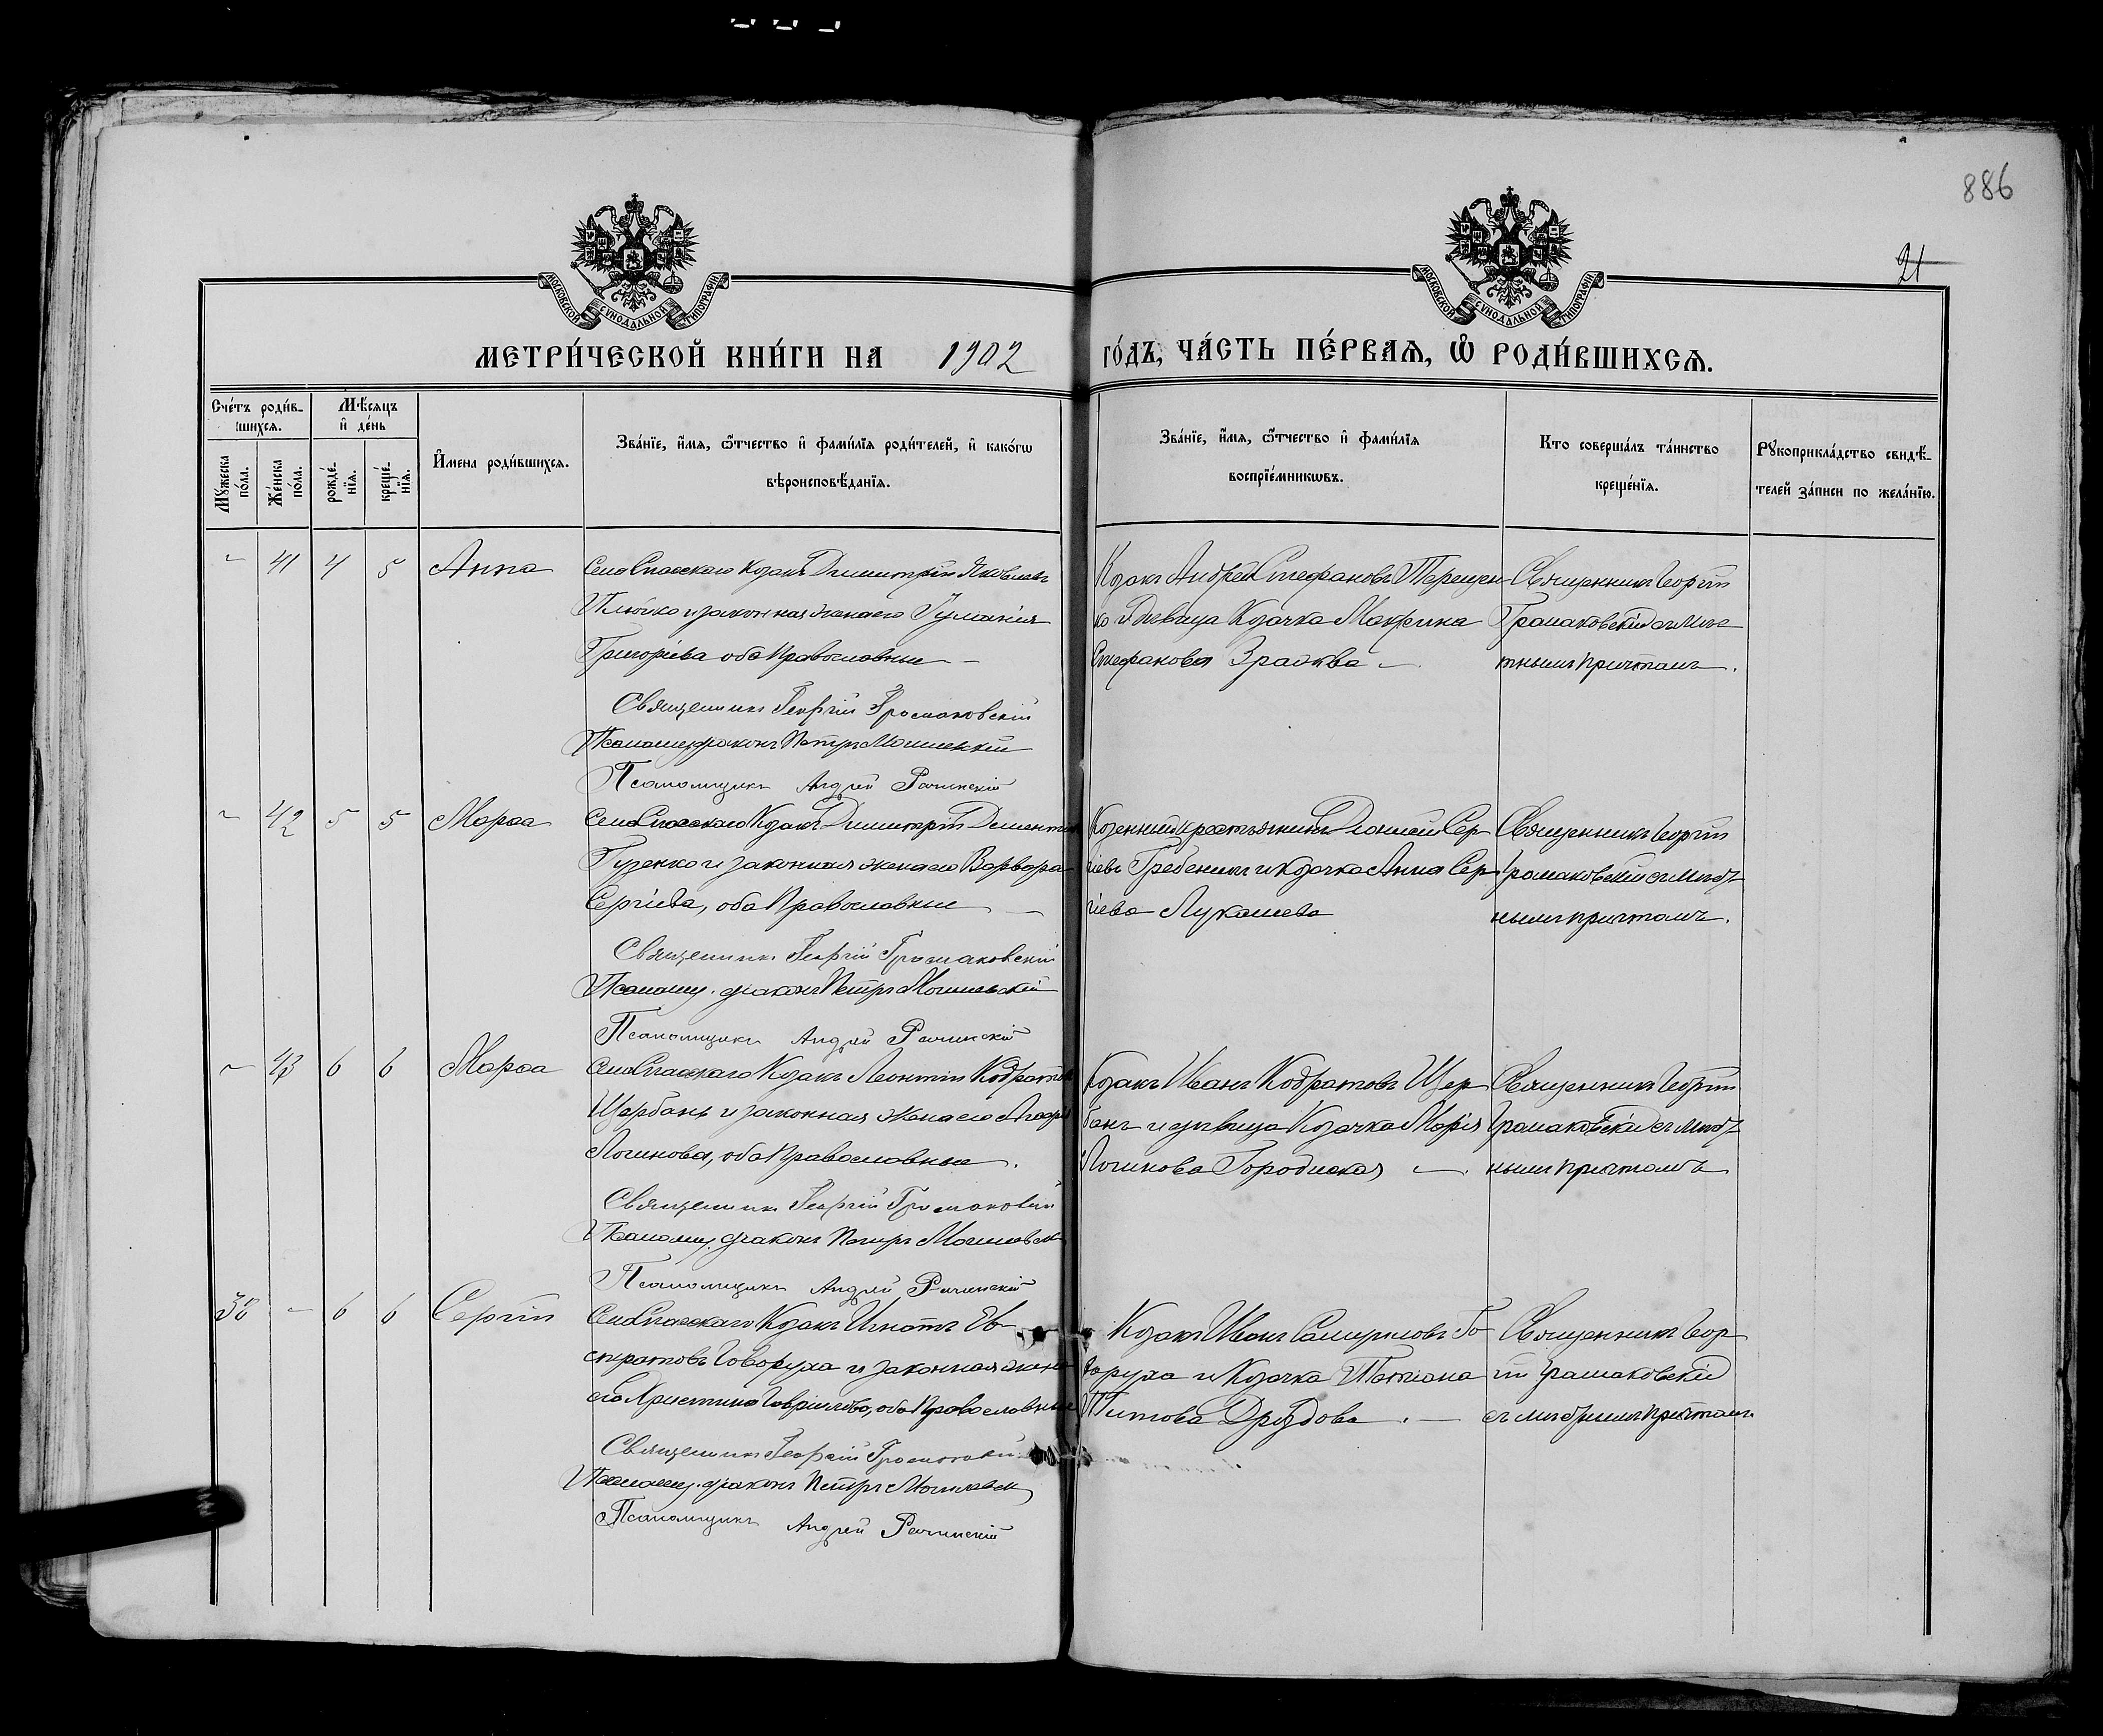 886
21
МОСКОВСКОЙ СУНОДАЛЬНОЙ ТИПОГРАФІИ
МОСКОВСКОЙ СУНОДАЛЬНОЙ ТИПОГРАФІИ
МЕТРИ́ЧЕСКОЙ КНИ́ГИ НА 1902 ГО́ДЪ, ЧА́СТЬ ПЕ́РВАѦ, Ѡ РОДИ́ВШИХСѦ.
Сче́тъ роди́в-
шихсѧ.
Мꙋ́жеска по́ла.
Же́нска по́ла.
Мѣ́сѧцъ и҆ де́нь
рожде́-нїѧ.
креще́-нїѧ.
И҆мена роди́вшихсѧ.
Зва́нїе, и҆́мѧ, ѻ҆́тчество и҆ фами́лїѧ роди́телей, и҆ како́гѡ
вѣроисповѣ́данїѧ.
Зва́нїе, и҆́мѧ, ѻ҆́тчество и҆ фами́лїѧ
воспрїе́мникѡвъ.
Кто соверша́лъ та́инство
креще́нїѧ.
Рꙋкоприкла́дство свидѣ́-
телей за́писи по жела́нїю.
41 4 5 Анна
Села Спасскаго Козакъ Димитрій Яковлевъ
и законная жена его
Григоріева оба Православные
Священникъ Георгій Громаковскій
Псаломщ. діаконъ Петръ
Псаломщикъ Андрей Рачинскій
Козакъ Андрей Стефановъ Терещен-
ко и Дѣвица Козачка Макрина
Стефанова
Священникъ Георгій
Громаковскій съ мѣс-
тнымъ причтомъ.
42 5 5 Марѳа
Села Спасскаго Козакъ Димитрій
Гузенко и законная жена его Варвара
Сергіева, оба Православные
Священникъ Георгій Громаковскій
Псаломщ. діаконъ Петръ
Псаломщикъ Андрей Рачинскій
крестьянинъ Сер-
гіевъ и козачка Анна Сер-
гіева Лукашева
Священникъ Георгій
Громаковскій съ мѣст-
нымъ причтомъ.
43 6 6 Марѳа
Села Спасскаго Козакъ Леонтій Кодратовъ
Щербань и законная жена его
Логинова, оба Православные.
Священникъ Георгій Громаковскій
Псаломщ. діаконъ Петръ
Псаломщикъ Андрей Рачинскій
Козакъ Иванъ Кодратовъ Щер-
бань и дѣвица Козачка Марія
Логинова
Священникъ Георгій
Громаковскій съ мѣст-
нымъ причтомъ
38 - 6 6 Сергій
Села Спасскаго Козакъ Игнатъ Ев-
стратовъ Говоруха и законная жена
его Христина Гавріилова, оба Православные
Священникъ Георгій
Псаломщ. діаконъ Петръ
Псаломщикъ Андрей Рачинскій
Козакъ Иванъ Го-
воруха и Козачка Татіана
Титова Дроздова.
Священникъ Геор-
гій Громаковскій
съ мѣстнымъ причтомъ